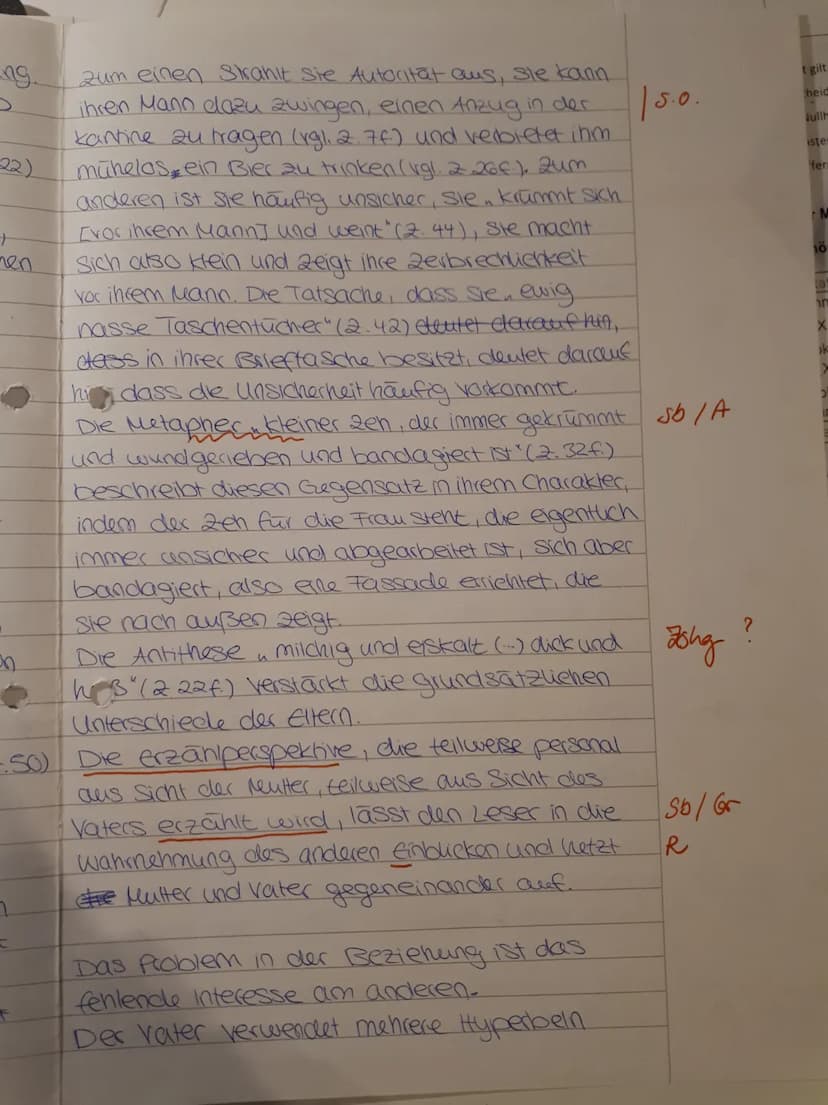 ng. zum einen strahlt sie Autorität aus, sie kann
ihren Mann dazu zwingen, einen Anzug in der | s.o.
Kantine zu tragen (vgl. Z. 7f) und verbietet ihm
22) mühelos, ein Bier zu trinken (vgl. Z. 26f.). Zum
anderen ist sie häufig unsicher, sie „krümmt sich
[vor ihrem Mann] und weint" (Z. 44), sie macht
nen sich also klein und zeigt ihre Zerbrechlichkeit
vor ihrem Mann. Die Tatsache, dass sie „ewig
nasse Taschentücher" (Z. 42) deutet darauf hin,
dass in ihrer Brieftasche besitzt, deutet darauf
hin, dass die Unsicherheit häufig vorkommt.
Die Metapher „kleiner Zeh, der immer gekrümmt Sb/A
und wundgerieben und bandagiert ist" (Z. 32f.)
beschreibt diesen Gegensatz in ihrem Charakter,
indem der Zeh für die Frau steht, die eigentlich
immer unsicher und abgearbeitet ist, sich aber
bandagiert, also eine Fassade errichtet, die
sie nach außen zeigt.
Die Antithese „milchig und eiskalt (..) dick und Zshg ?
heiß" (Z 22f.) verstärkt die grundsätzlichen
Unterschiede der Eltern.
.50) Die Erzählperspektive, die teilweise personal
aus Sicht der Mutter, teilweise aus Sicht des
Vaters erzählt wird, lässt den Leser in die Sb/Gr
Wahrnehmung des anderen einblicken und hetzt R
die Mutter und Vater gegeneinander auf.
Das Problem in der Beziehung ist das
fehlende Interesse am anderen.
Der Vater verwendet mehrere Hyperbeln